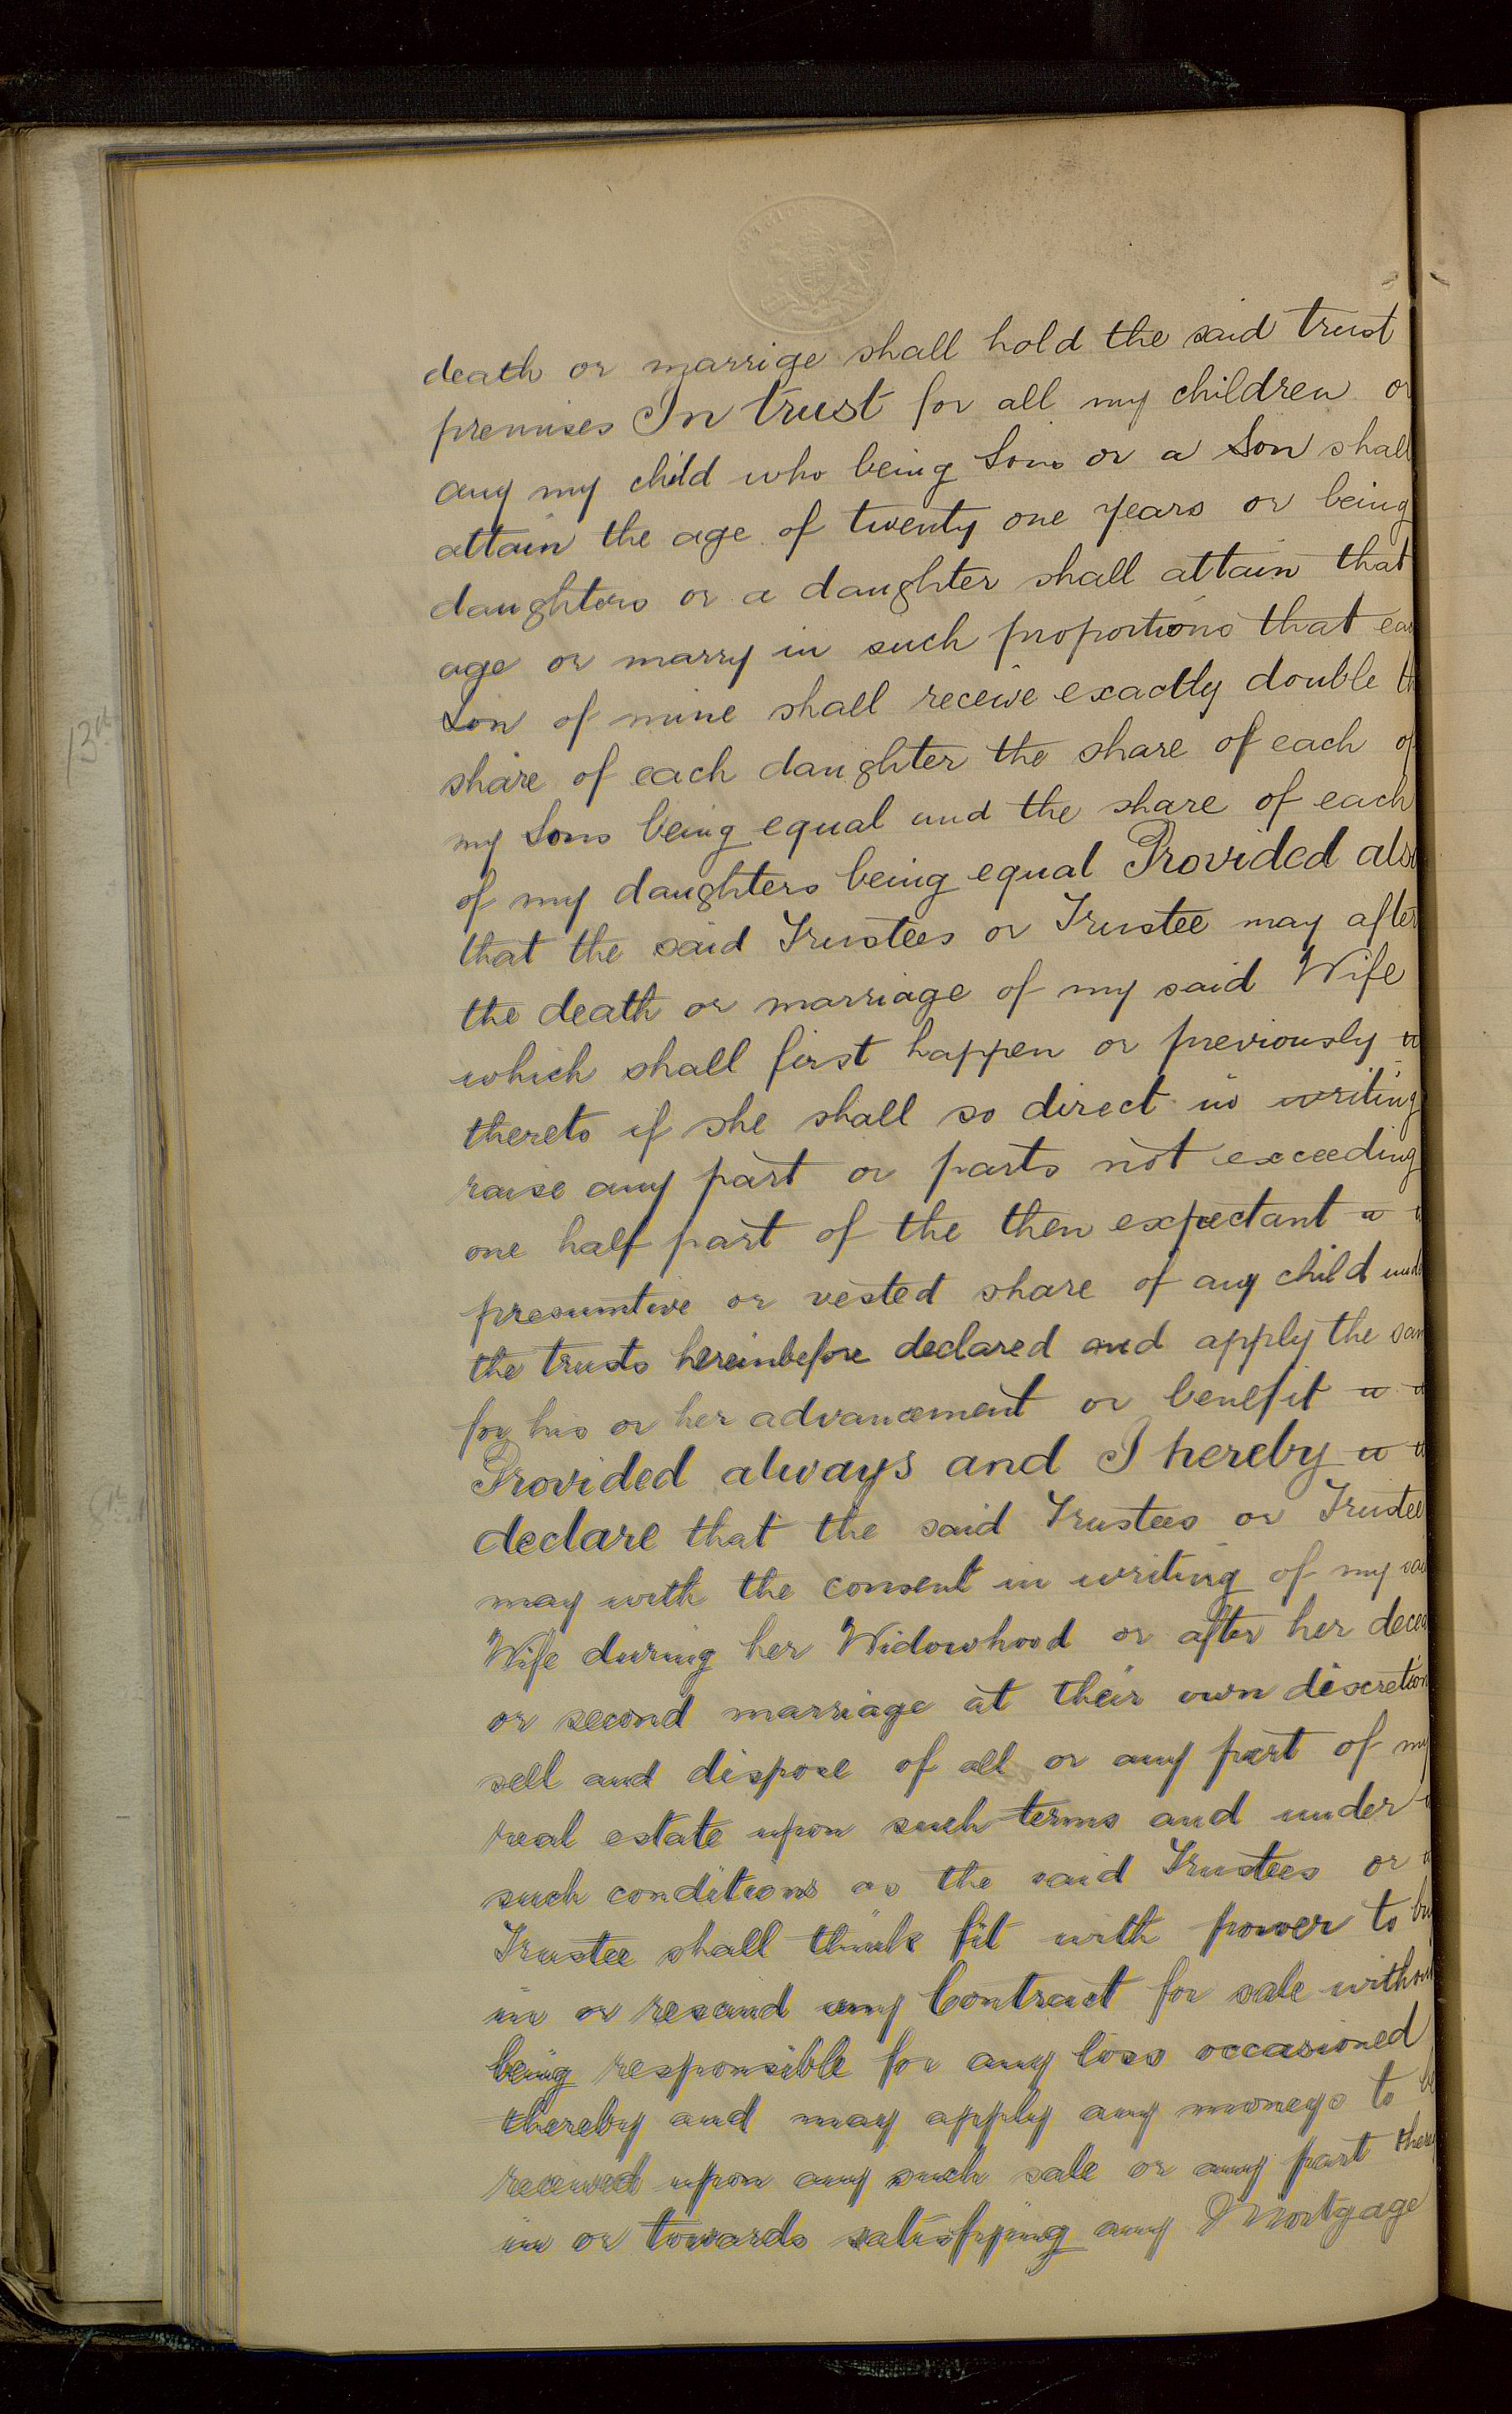 death or marrige shall hold the said trust
premises In trust for all my children or
any my child who being Sons or a Son shall
attain the age of twenty one years or being
daughters or a daughter shall attain that
age or marry in such proportions that
Son of mine shall receive exactly double
share of each daughter the share of each of
my Sons being equal and the share of each
of my daughters being equal Provided also
that the said Trustees or Trustee may after
the death or marriage of my said Wife
which shall first happen or previously
thereto if she shall so direct in writing
raise any part or parts not exceeding
one half part of the then expectant
presumtive or vested share of any child
the trusts hereinbefore declared and apply the
for his or her advancement or benefit
Provided always and I hereby
declare that the said Trustees or Trustee
may with the consent in writing of my
Wife during her Widowhood or after her
or second marriage at their own discretion
sell and dispose of all or any part of my
real estate upon such terms and under
such conditions as the said Trustees or
Trustee shall think fit with power to
in or rescind any Contract for sale
being responsible for any loss occasioned
thereby and may apply any moneys to
received upon any such sale or any part
in or towards satisfying any Mortgage